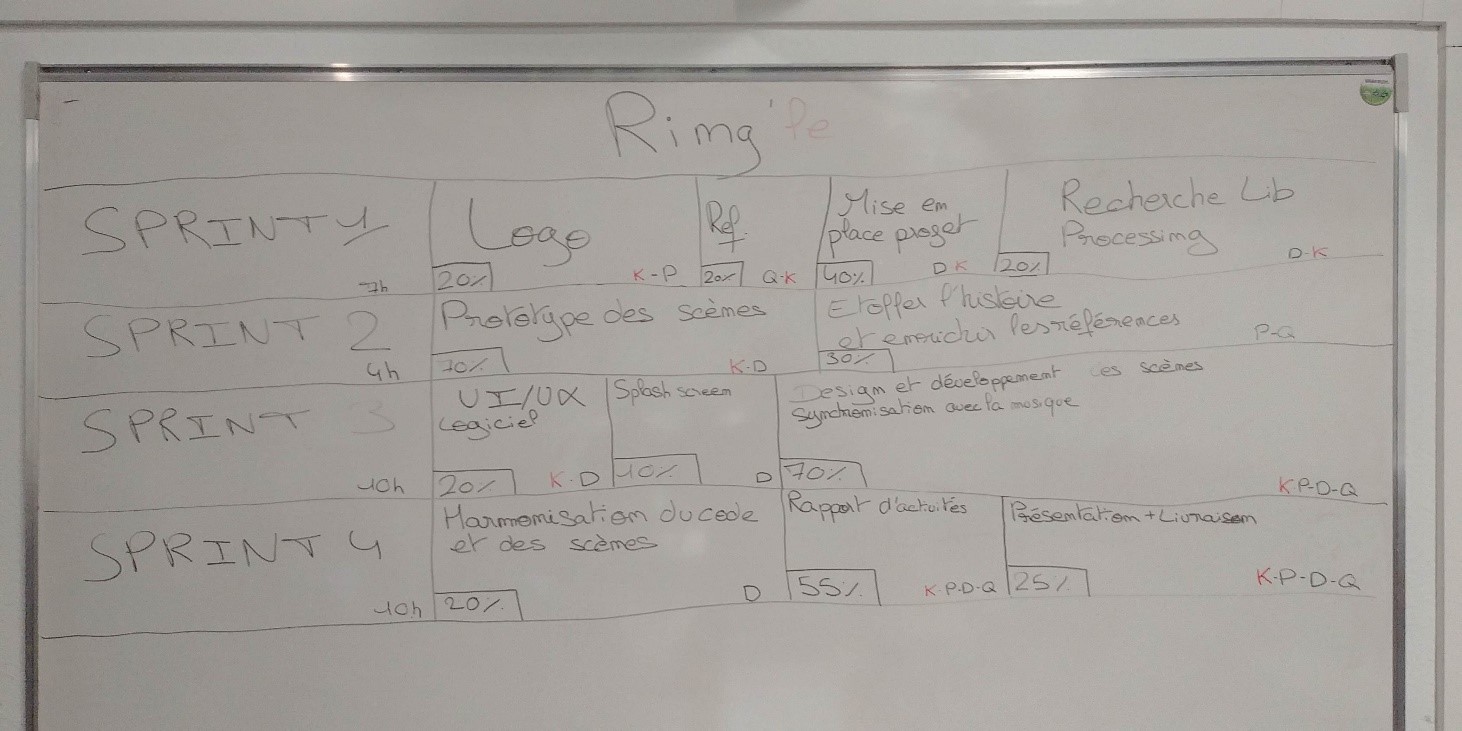 Rimg'Pe
SPRINT 1
7h
Logo
20%
K-P
Ref.
20%
Q-K
Mise en
place projet
40%
D K
Recherche Lib
Processing
20%
D-K
SPRINT 2
4h
Prototype des scènes
70%
K-D
Etoffer l'histoire
et enrichir les références
30%
P-Q
SPRINT 3
10h
UI/UX
Logiciel
20%
K-D
Splash screen
10%
D
Design et développement des scènes
Synchronisation avec la musique
70%
K-P-D-Q
SPRINT 4
10h
Harmonisation du code
et des scènes
20%
D
Rapport d'activités
55%
K-P-D-Q
Présentation + Livraison
25%
K-P-D-Q